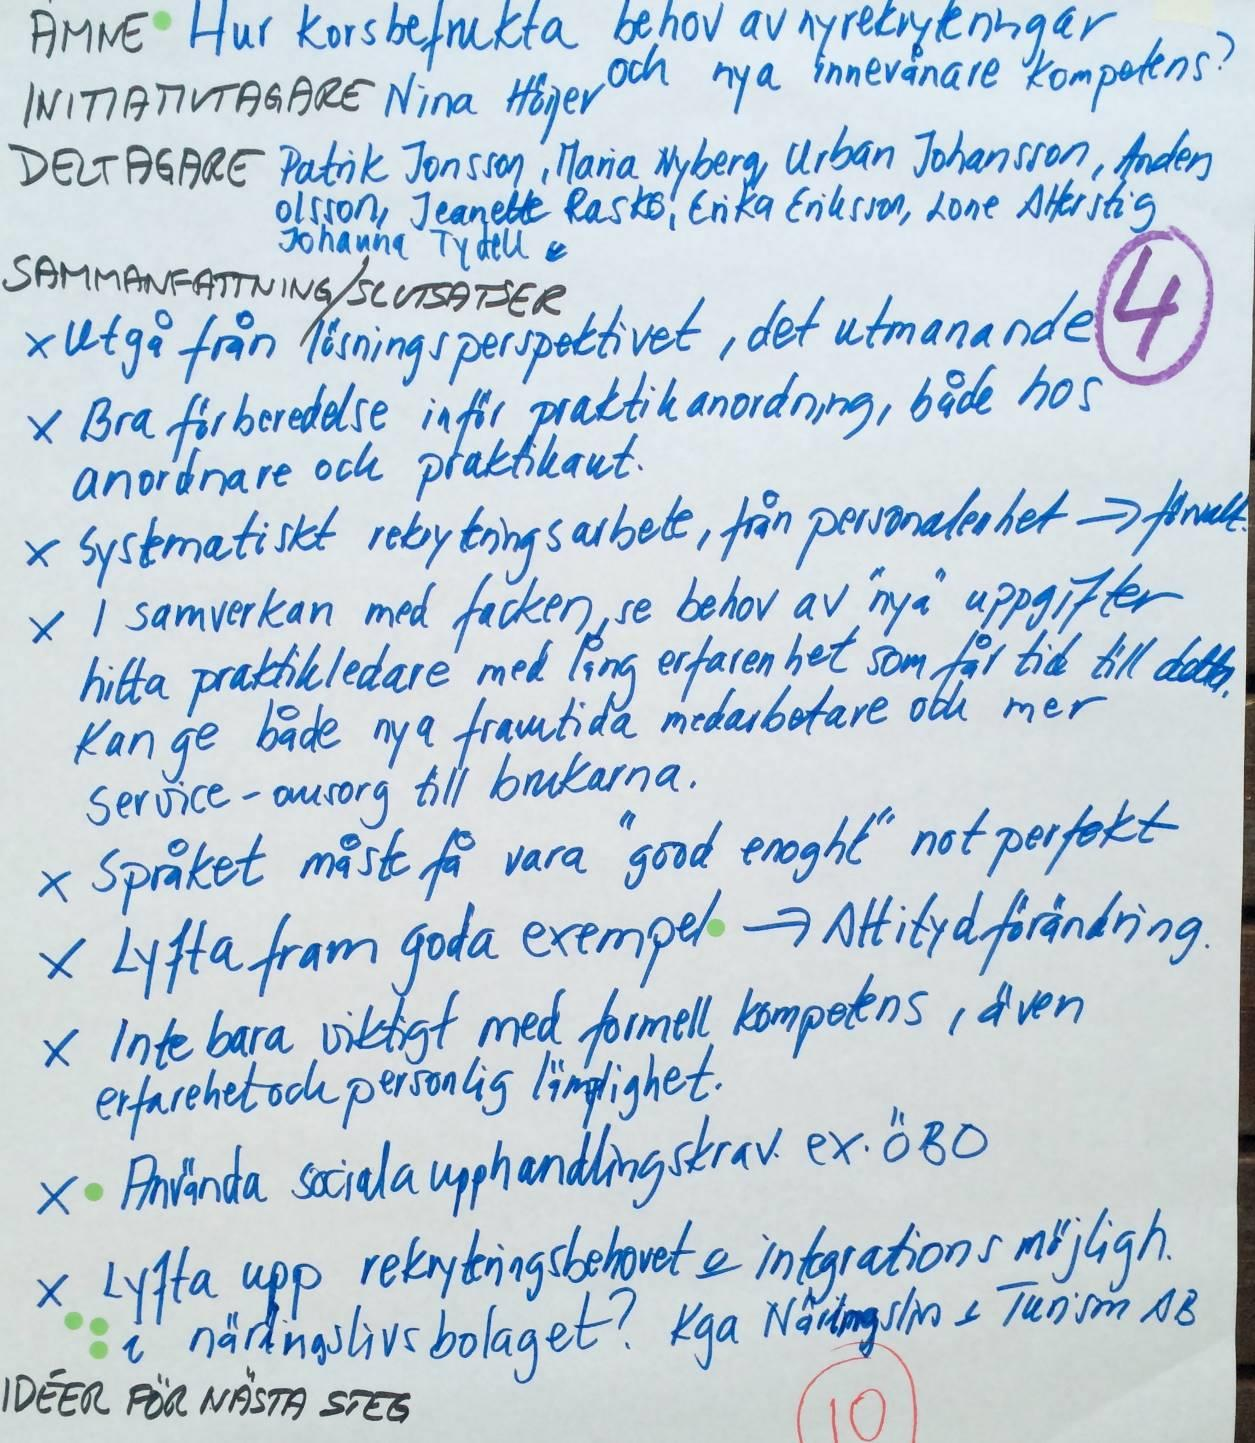 ÄMNE Hur korsbefrukta behov av nyrekryteringar
och nya innevånare kompetens?
INITIATIVTAGARE Nina Höijer
DELTAGARE Patrik Jonsson, Maria Nyberg, Urban Johansson, Anders
olsson, Jeanette Raskö, Erika Eriksson, Lone Atterstig
Johanna Tydell
SAMMANFATTNING/SLUTSATSER
4
x Utgå från lösningsperspektivet, det utmanande
x Bra förberedelse inför praktikanordning, både hos
anordnare och praktikant.
x Systematiskt rekryteringsarbete, från personalenhet → förvalt.
x I samverkan med facken, se behov av "nya" uppgifter
hitta praktikledare med lång erfarenhet som får tid till detta.
Kan ge både nya framtida medarbetare och mer
service-omsorg till brukarna.
x Språket måste få vara "good enoght" not perfekt
x Lyfta fram goda exempel → Attitydförändring.
x Inte bara viktigt med formell kompetens, även
erfarehet och personlig lämplighet.
x Använda sociala upphandlingskrav. ex. ÖBO
x Lyfta upp rekryteringsbehovet & integrationsmöjligh.
i näringslivsbolaget? Kga Näringsliv & Turism AB
IDÉER FÖR NÄSTA STEG
10